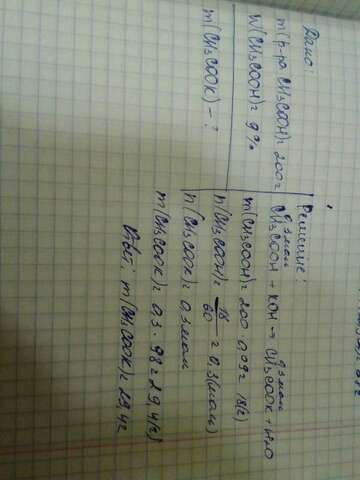 Дано:
m(р-ра CH3COOH)=200г
W(CH3COOH)=9%
m(CH3COOK)-?
Решение:
0,3моль 0,3моль
CH3COOH + KOH → CH3COOK + H2O
m(CH3COOH)=200·0,09=18(г)
n(CH3COOH)=18/60=0,3(моль)
n(CH3COOK)=0,3моль
m(CH3COOK)=0,3·98=29,4(г)
Ответ: m(CH3COOK)=29,4г